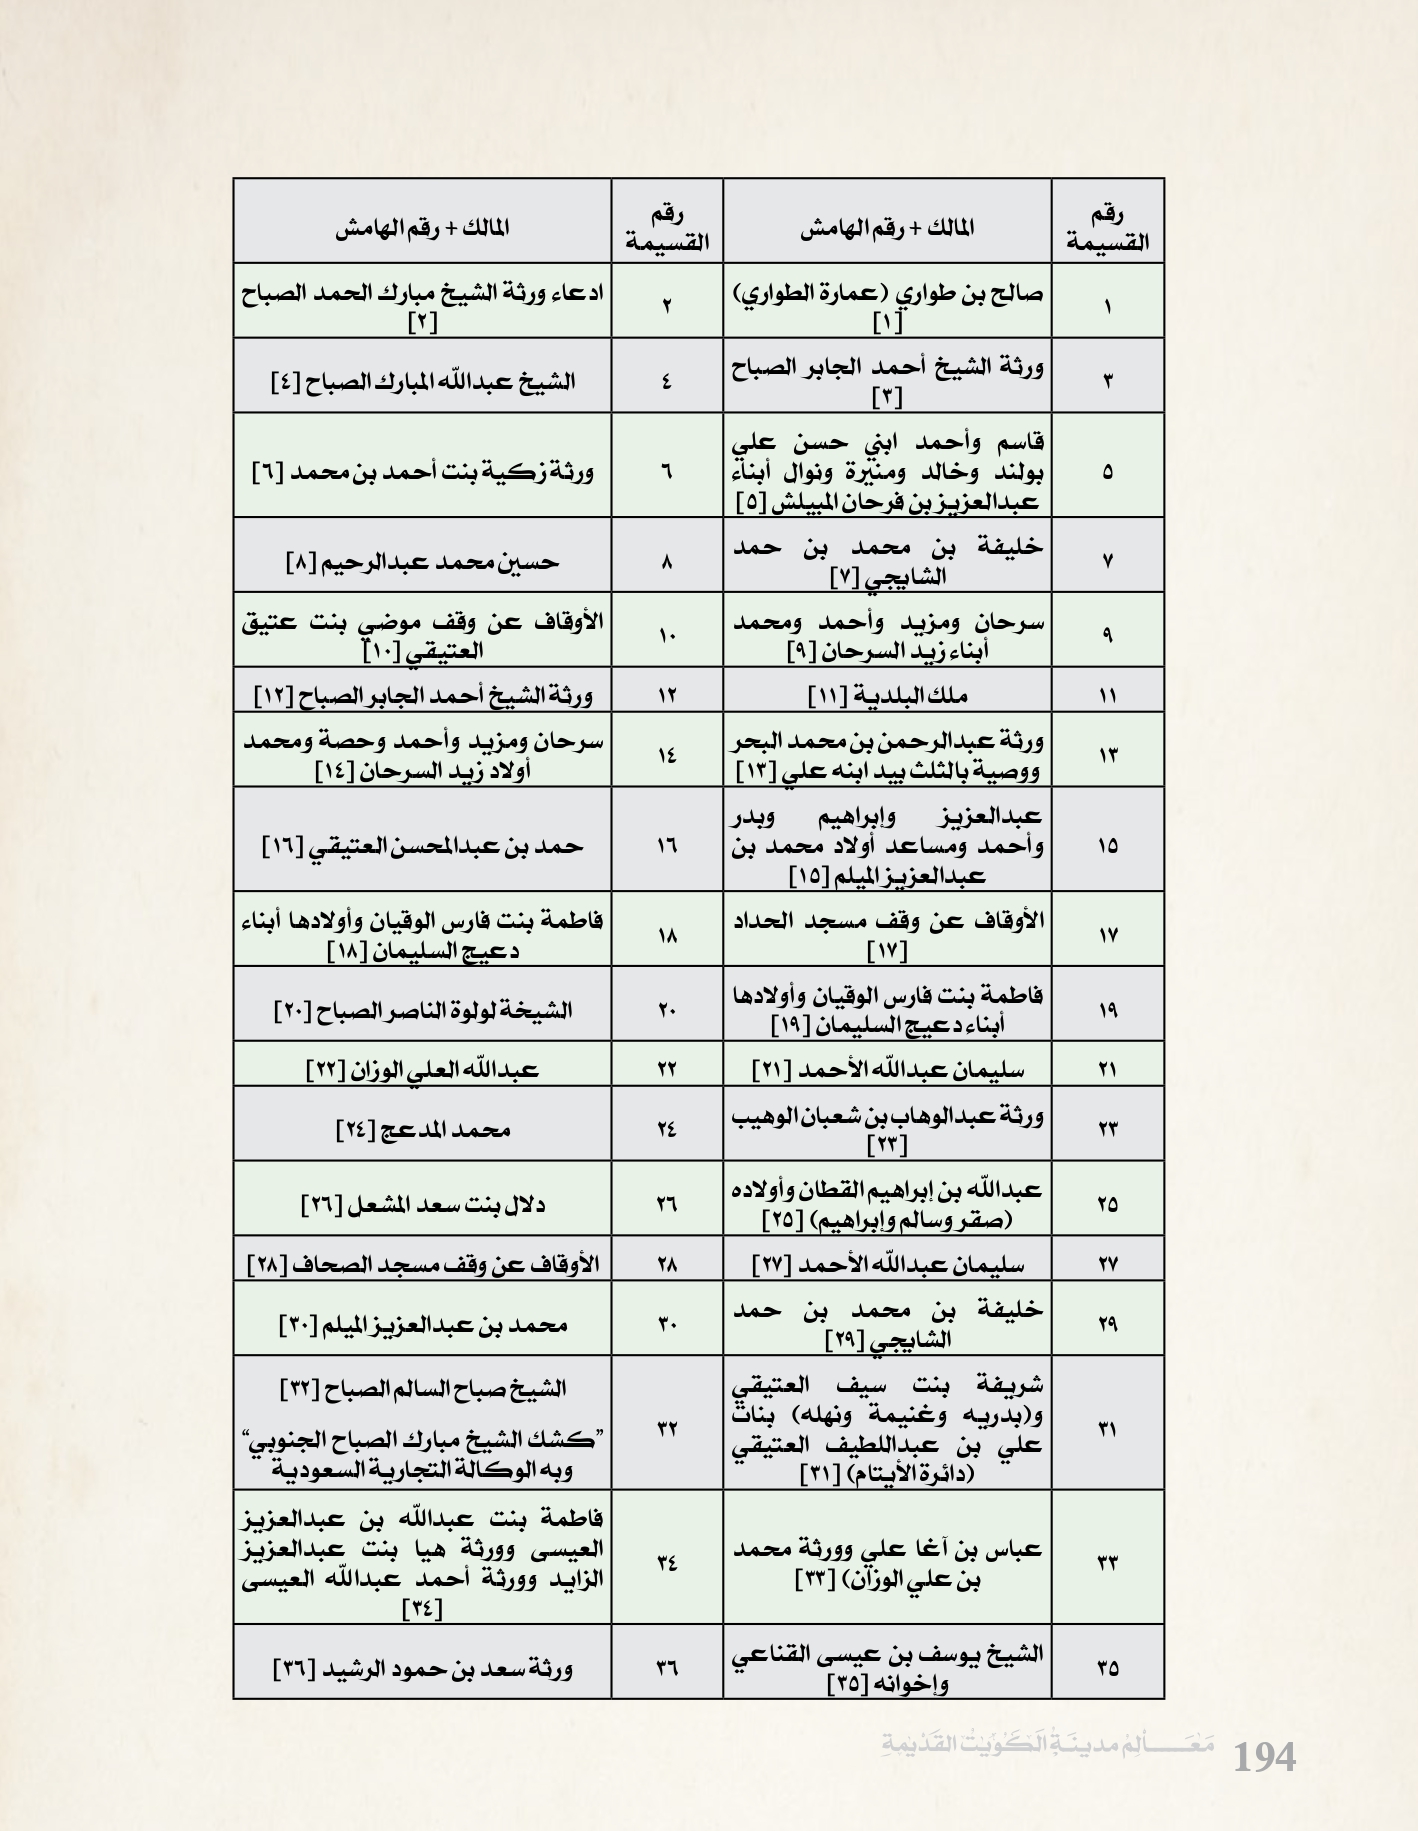 رقم القسيمة
المالك + رقم الهامش
رقم القسيمة
المالك + رقم الهامش
١
صالح بن طواري (عمارة الطواري)
[١]
٢
ادعاء ورثة الشيخ مبارك الحمد الصباح
[٢]
٣
ورثة الشيخ أحمد الجابر الصباح
[٣]
٤
الشيخ عبدالله المبارك الصباح [٤]
٥
قاسم وأحمد ابني حسن علي
بولند وخالد ومنيرة ونوال أبناء
عبدالعزيز بن فرحان المبيلش [٥]
٦
ورثة زكية بنت أحمد بن محمد [٦]
٧
خليفة بن محمد بن حمد
الشايجي [٧]
٨
حسين محمد عبدالرحيم [٨]
٩
سرحان ومزيد وأحمد ومحمد
أبناء زيد السرحان [٩]
١٠
الأوقاف عن وقف موضي بنت عتيق
العتيقي [١٠]
١١
ملك البلدية [١١]
١٢
ورثة الشيخ أحمد الجابر الصباح [١٢]
١٣
ورثة عبدالرحمن بن محمد البحر
ووصية بالثلث بيد ابنه علي [١٣]
١٤
سرحان ومزيد وأحمد وحصة ومحمد
أولاد زيد السرحان [١٤]
١٥
عبدالعزيز وإبراهيم وبدر
وأحمد ومساعد أولاد محمد بن
عبدالعزيز الميلم [١٥]
١٦
حمد بن عبدالمحسن العتيقي [١٦]
١٧
الأوقاف عن وقف مسجد الحداد
[١٧]
١٨
فاطمة بنت فارس الوقيان وأولادها أبناء
دعيج السليمان [١٨]
١٩
فاطمة بنت فارس الوقيان وأولادها
أبناء دعيج السليمان [١٩]
٢٠
الشيخة لولوة الناصر الصباح [٢٠]
٢١
سليمان عبدالله الأحمد [٢١]
٢٢
عبدالله العلي الوزان [٢٢]
٢٣
ورثة عبدالوهاب بن شعبان الوهيب
[٢٣]
٢٤
محمد المدعج [٢٤]
٢٥
عبدالله بن إبراهيم القطان وأولاده
(صقر وسالم وإبراهيم) [٢٥]
٢٦
دلال بنت سعد المشعل [٢٦]
٢٧
سليمان عبدالله الأحمد [٢٧]
٢٨
الأوقاف عن وقف مسجد الصحاف [٢٨]
٢٩
خليفة بن محمد بن حمد
الشايجي [٢٩]
٣٠
محمد بن عبدالعزيز الميلم [٣٠]
٣١
شريفة بنت سيف العتيقي
و(بدريه وغنيمة ونهله) بنات
علي بن عبداللطيف العتيقي
(دائرة الأيتام) [٣١]
٣٢
الشيخ صباح السالم الصباح [٣٢]
”كشك الشيخ مبارك الصباح الجنوبي“
وبه الوكالة التجارية السعودية
٣٣
عباس بن آغا علي وورثة محمد
بن علي الوزان) [٣٣]
٣٤
فاطمة بنت عبدالله بن عبدالعزيز
العيسى وورثة هيا بنت عبدالعزيز
الزايد وورثة أحمد عبدالله العيسى
[٣٤]
٣٥
الشيخ يوسف بن عيسى القناعي
وإخوانه [٣٥]
٣٦
ورثة سعد بن حمود الرشيد [٣٦]
194 مَعَـــالِمُ مدينَةِ الكُوَيْتِ القَدْيمةِ